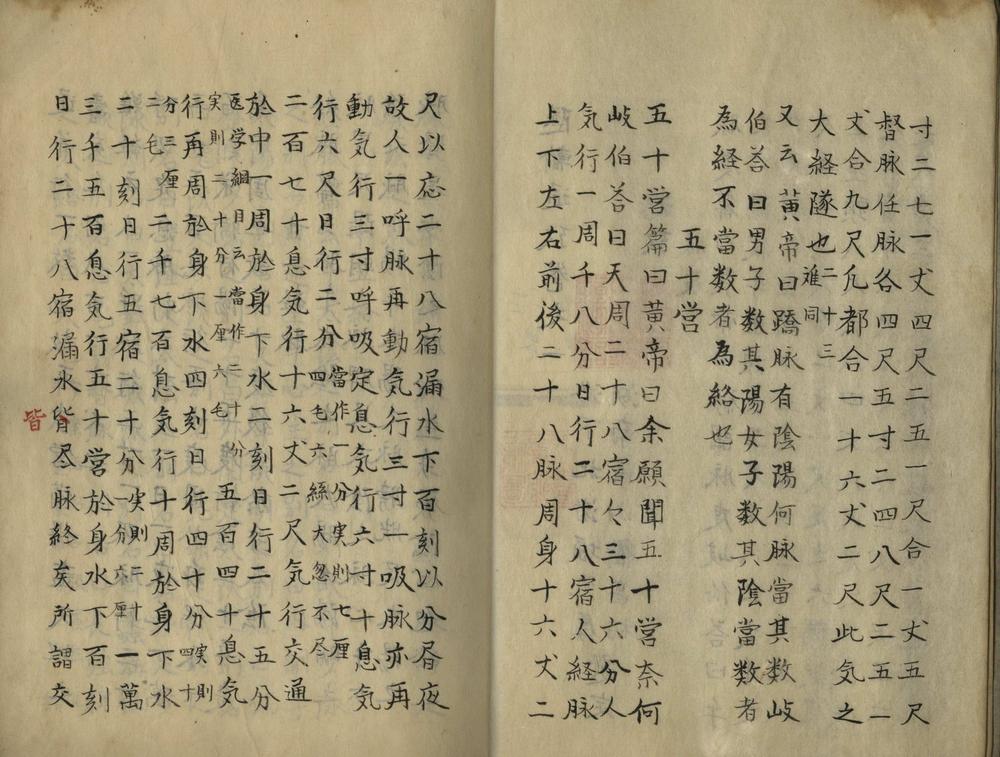 寸二七一丈四尺二五一尺合一丈五尺
督脉任脉各四尺五寸二四八尺二五一
丈合九尺凢都合一十六丈二尺此気之
大経隧也二十三難同
又云黄帝曰蹻脉有陰陽何脉當其数岐
伯荅曰男子数其陽女子数其陰當数者
為経不當数者為絡也
五十営
五十営篇曰黄帝曰余願聞五十営奈何
岐伯荅曰天周二十八宿々三十六分人
気行一周千八分日行二十八宿人経脉
上下左右前後二十八脉周身十六丈二
尺以応二十八宿漏水下百刻以分昼夜
故人一呼脉再動気行三寸一吸脉亦再
動気行三寸呼吸定息気行六寸十息気
行六尺日行二分當作一分実則七厘四毛六絲大忽不尽
二百七十息気行十六丈二尺気行交通
於中一周於身下水二刻日行二十五分
医学綱目云當作二十分実則二十分一厘六毛五百四十息気
行再周於身下水四刻日行四十分実則四十分三厘
二毛二千七百息気行十周於身下水
二十刻日行五宿二十分実則二十一分六厘一萬
三千五百息気行五十営於身水下百刻
日行二十八宿漏水皆尽脉終矣所謂交
皆